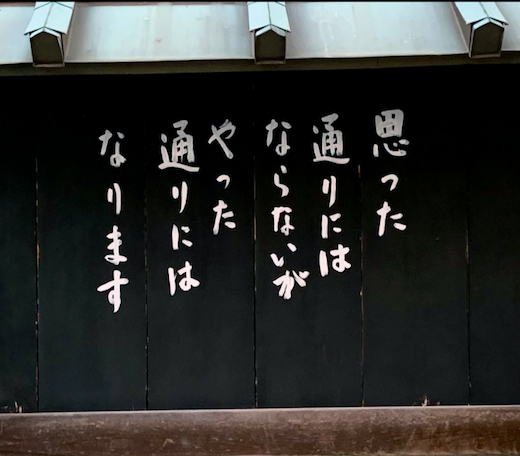 思った
通りには
ならないが
やった
通りには
なります